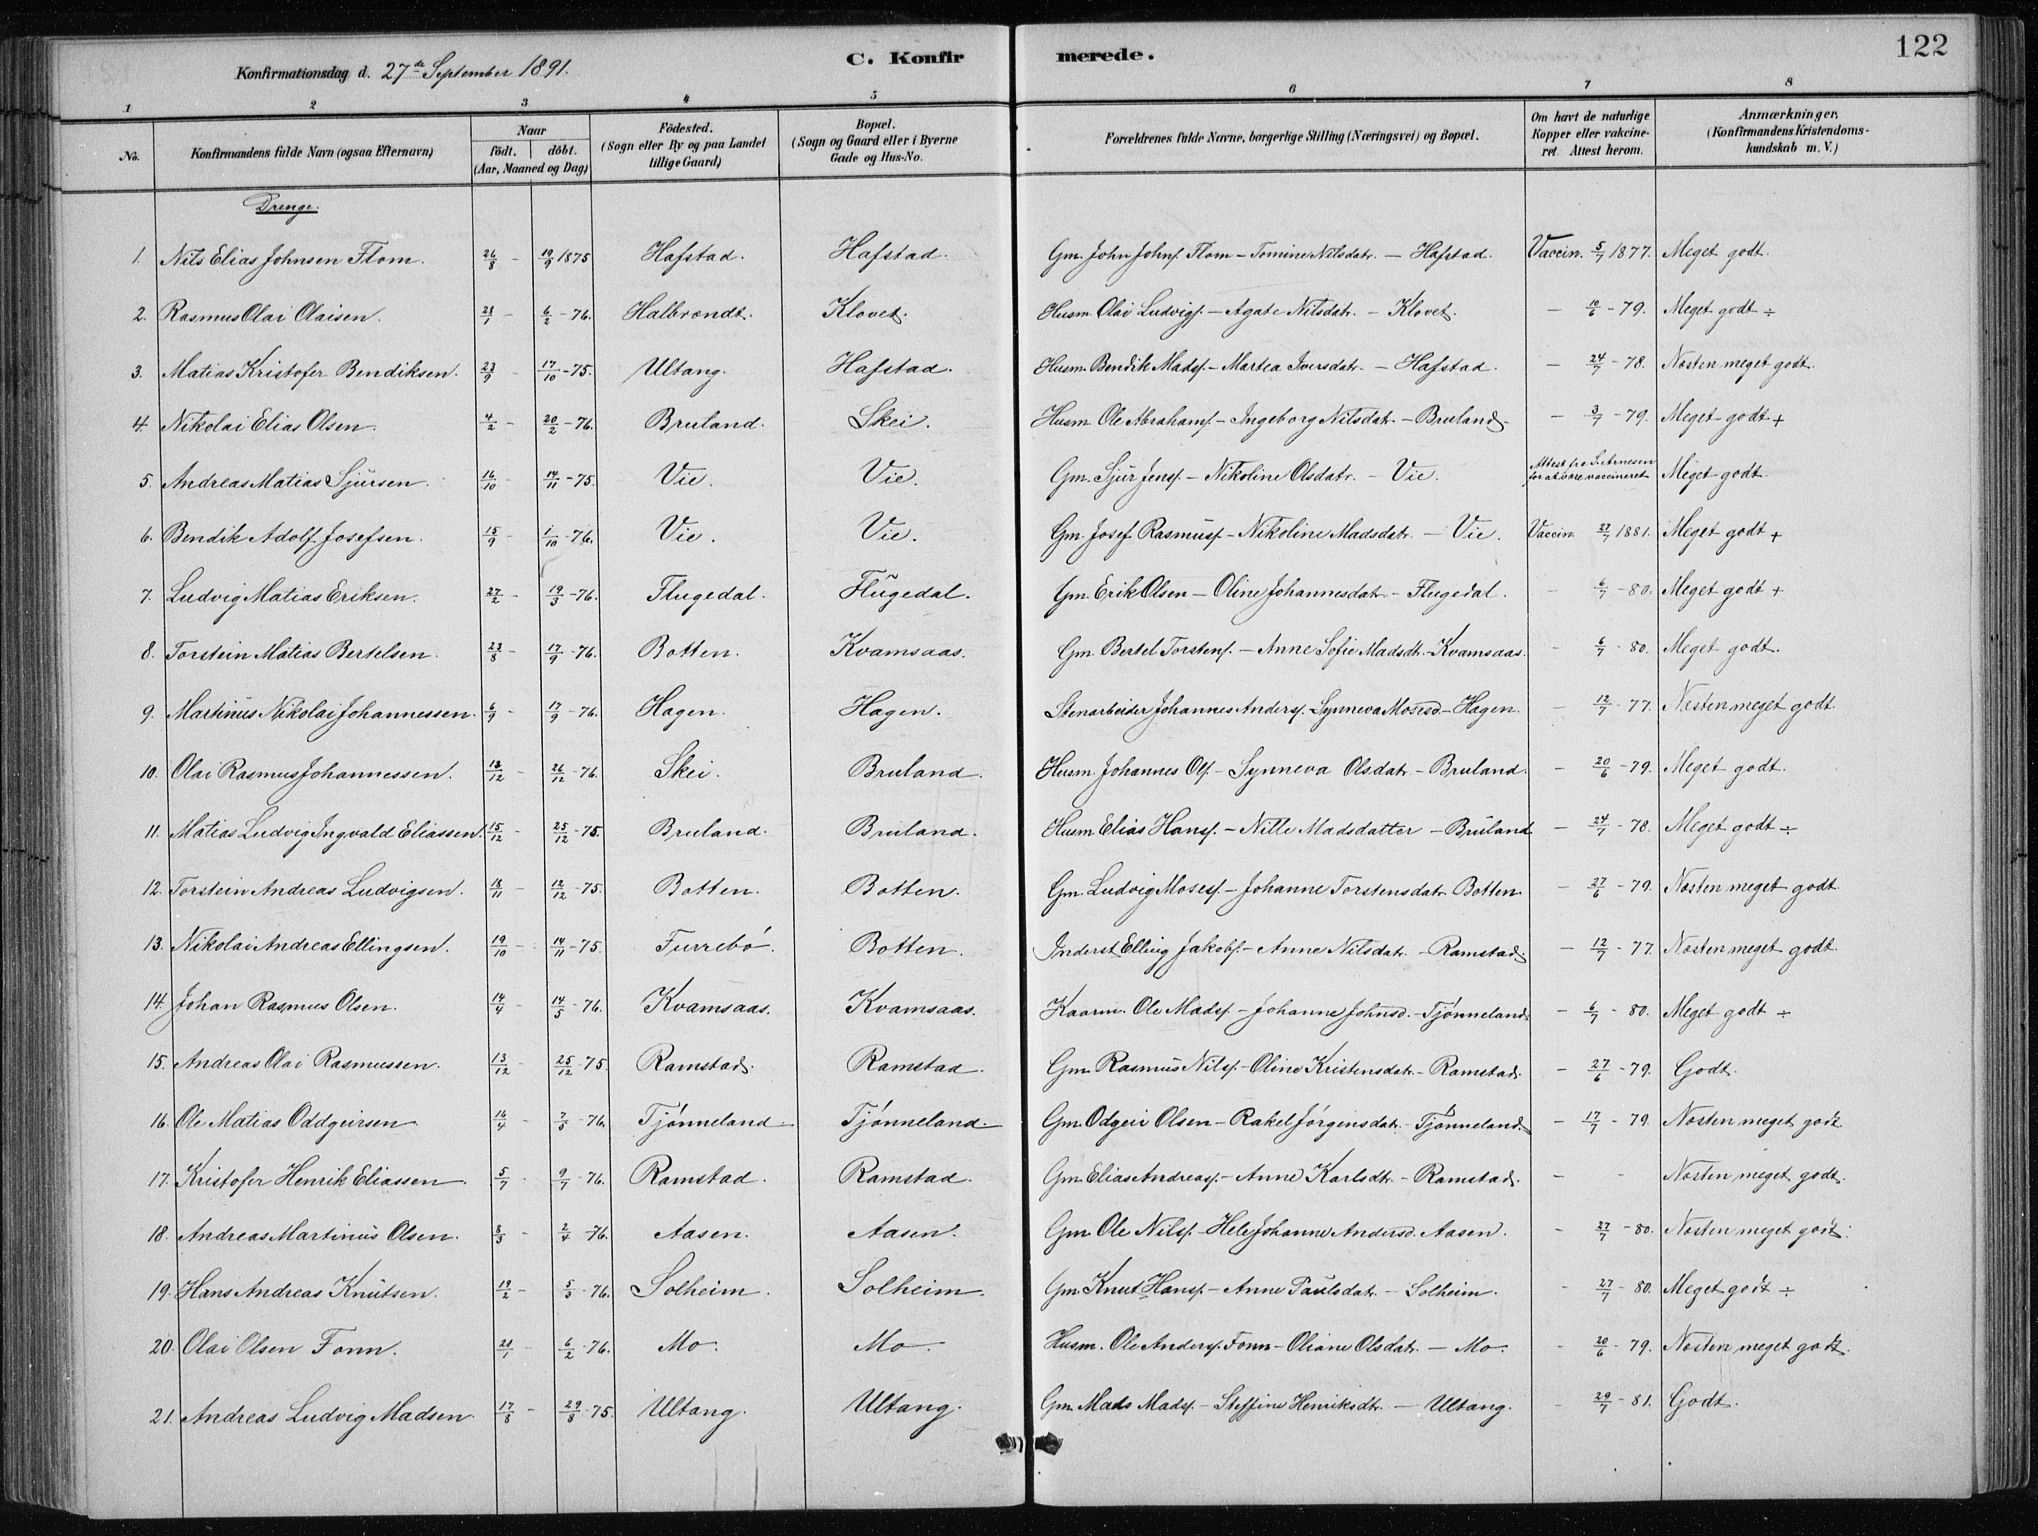 Konfirmationsdag d. 27de September 1891.
C. Konfirmerede.
122
1 2 3 4 5 6 7 8
No.
Konfirmandens fulde Navn (ogsaa Efternavn)
Naar
födt. döbt.
(Aar, Maaned og Dag)
Födested.
(Sogn eller By og paa Landet
tillige Gaard)
Bopæl.
(Sogn og Gaard eller i Byerne
Gade og Hus-No.
Forældrenes fulde Navne, borgerlige Stilling (Næringsvei) og Bopæl.
Om havt de naturlige
Kopper eller vakcine-
ret. Attest herom.
Anmærkninger.
(Konfirmandens Kristendoms-
kundskab m. V.)
Drenge.
1. Nils Elias Johnsen Flom. 26/8 - 19/9 1875 Hafstad. Hafstad. Gm. John Johns. Flom - Tomine Nilsdatr. - Hafstad. Vaccin. 5/7 1877. Meget godt.
2. Rasmus Olai Olaisen. 28/1 - 6/2 - 76. Halbrendt. Klovet. Husm. Olai Ludvigs. - Agate Nilsdatr. - Klovet. - 10/6 - 79. Meget godt ÷
3. Matias Kristofer Bendiksen. 23/9 - 17/10 - 75. Ultang. Hafstad. Husm. Bendik Mads. - Martea Iversdatr. - Hafstad. - 24/7 - 78. Nesten meget godt.
4. Nikolai Elias Olsen. 4/2 - 20/2 - 76. Bruland. Skei. Husm. Ole Abrahams. - Ingeborg Nilsdatr. - Bruland. - 3/7 - 79. Meget godt +
5. Andreas Matias Sjursen. 16/10 - 14/11 - 75. Vie. Vie. Gm. Sjur Jens. - Nikoline Olsdatr. - Vie. Attest fra for at være vaccineret Meget godt
6. Bendik Adolf Josefsen. 15/9 - 1/10 - 76. Vie. Vie. Gm. Josef Rasmus. - Nikoline Madsdatr. - Vie. Vaccin. 27/7 1881. Meget godt +
7. Ludvig Matias Eriksen. 27/2 - 19/3 - 76. Flugedal. Flugedal. Gm. Erik Olsen - Oline Johannesdatr. - Flugedal. - 6/7 - 80. Meget godt +
8. Torstein Matias Bertelsen. 23/8 - 17/9 - 76. Botten. Kvamsaas. Gm. Bertel Torstens. - Anne Sofie Madsdt. - Kvamsaas. - 6/7 - 80. Meget godt.
9. Martinus Nikolai Johannessen. 6/9 - 17/9 - 76. Hagen. Hagen. Stenarbeider Johannes Anders. - Synneva Mosesd. - Hagen. - 12/7 - 77. Nesten meget godt
10. Olai Rasmus Johannessen. 18/12 - 26/12 - 76. Skei. Bruland. Husm. Johannes Ols. - Synneva Olsdatr. - Bruland. - 20/6 - 79. Meget godt.
11. Matias Ludvig Ingvald Eliassen. 15/12 - 25/12 - 75. Bruland. Bruland. Husm. Elias Hans. - Nille Madsdatter - Bruland - 24/7 - 78. Meget godt ÷
12. Torstein Andreas Ludvigsen. 18/11 - 12/12 - 75. Botten. Botten. Gm. Ludvig Moses. - Johanne Torstensdatr. Botten. - 27/6 - 79. Nesten meget godt
13. Nikolai Andreas Ellingsen. 19/10 - 14/11 - 75. Furrebö. Botten. Inderst Elling Jakobs. - Anne Nilsdatr. - Ramstad - 12/7 - 77. Nesten meget godt.
14. Johan Rasmus Olsen. 14/4 - 14/5 - 76. Kvamsaas. Kvamsaas. Kaarm. Ole Mads. - Johanne Johnsd. - Tjönneland - 6/7 - 80. Meget godt ÷
15. Andreas Olai Rasmussen. 13/12 - 25/12 - 75. Ramstad. Ramstad. Gm. Rasmus Nils. - Oline Kristensdatr. - Ramstad. - 27/6 - 79. Godt.
16. Ole Matias Oddgeirsen. 16/4 - 7/5 - 76. Tjönneland - Tjönneland - Gm. Odgeir Olsen - Rakel Jörgensdatr. - Tjönneland. - 17/7 - 79. Nesten meget godt.
17. Kristofer Henrik Eliassen. 5/7 - 9/7 - 76. Ramstad. Ramstad. Gm. Elias Andreas. - Anne Karlsdtr. - Ramstad. - - Nesten meget godt.
18. Andreas Martinus Olsen. 8/3 - 2/4 - 76. Aasen. Aasen. Gm. Ole Nils. - Hele Johanne Andersd. Aasen. - 27/7 - 80. Nesten meget godt.
19. Hans Andreas Knutsen. 19/2 - 5/3 - 76. Solheim. Solheim. Gm. Knut Hans. - Anne Paulsdatr. - Solheim. - 27/7 - 80. Meget godt ÷
20. Olai Olsen Fonn. 21/1 - 6/2 - 76. Mo. Mo. Husm. Ole Anders. Fonn - Oliane Olsdatr. - Mo. - 20/6 - 79. Nesten meget godt.
21. Andreas Ludvig Madsen. 17/8 - 29/8 - 75. Ultang. Ultang. Gm. Mads Mads. - Steffine Henriksdtr. - Ultang. - 29/7 - 81. Godt.